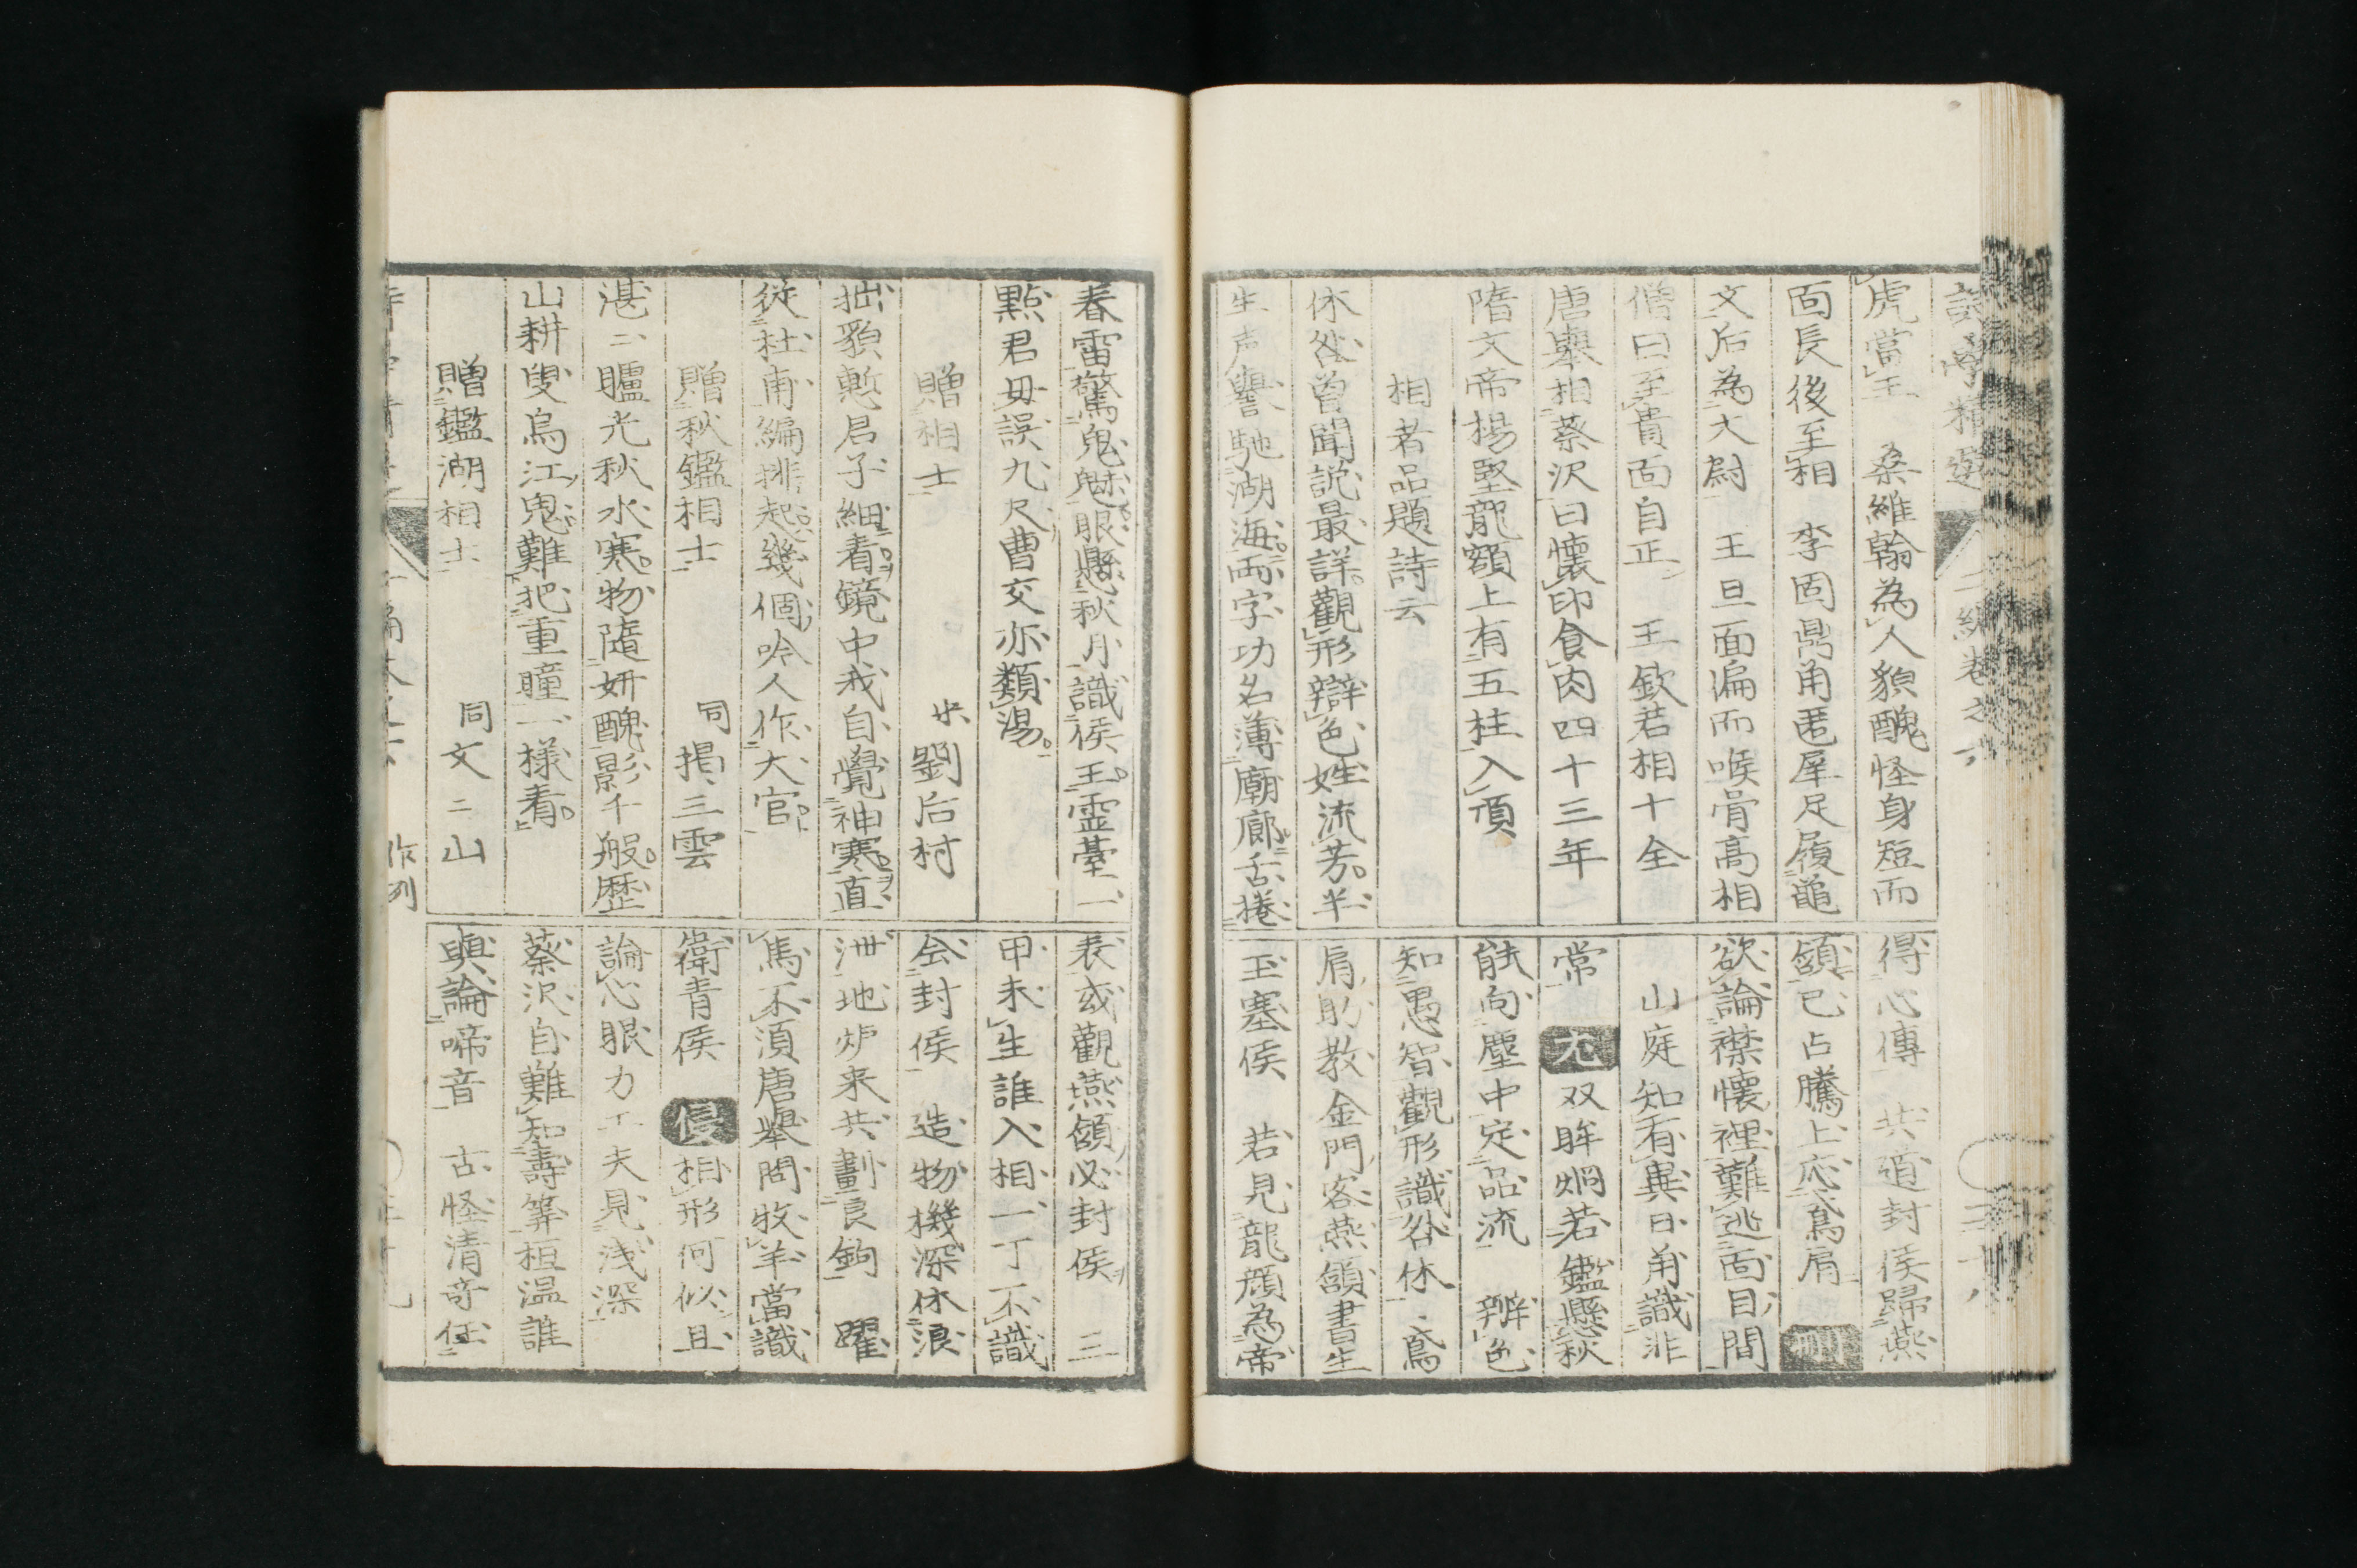 虎當王　桑維翰為人貌醜怪身短而
面長後至相　李固鼎角匿犀足履龜
文后為大尉　王旦面偏而喉骨高相
僧曰至貴面自正　王欽若相十全
唐舉相蔡沢曰懐印食肉四十三年
隋文帝楊堅龍額上有五柱入頂
相者品題詩云
休咎曽聞説最詳觀形辯色姓流芳半
生声譽馳湖海両字功名薄廟廊舌捲
得心傳　共道封侯歸燕
頷已占騰上応鳶肩
欲論襟懐裡難逃面目間
山庭知有異日角識非
常　尤　双眸炯若鑑懸秋
能向塵中定品流　辨色
知愚智觀形識咎休　鳶
肩助教金門客燕頷書生
玉塞侯　若見龍顔為帝
春雷驚鬼魅眼懸秋月識侯王霊臺一
點君毋誤九尺曹交亦類湯
贈相士　劉后村
拙貌慙君子細看鏡中我自覺神寒直
従杜甫編排起幾個吟人作大官
贈秋鑑相士　同掲三雲
湛二瞳光秋水寒物隨妍醜影千般歴
山耕叟烏江鬼難把重瞳一様看
贈鑑湖相士　同文二山
表或觀燕頷必封侯　三
甲未生誰入相一丁不識
会封侯　造物機深休浪
泄地炉来共劃良鉤　躍
馬不須唐舉問牧羊當識
衛青侯　侵　相形何似且
論心眼力工夫見浅深
蔡沢自難知壽筭桓温誰
與論啼音　古怪清奇任